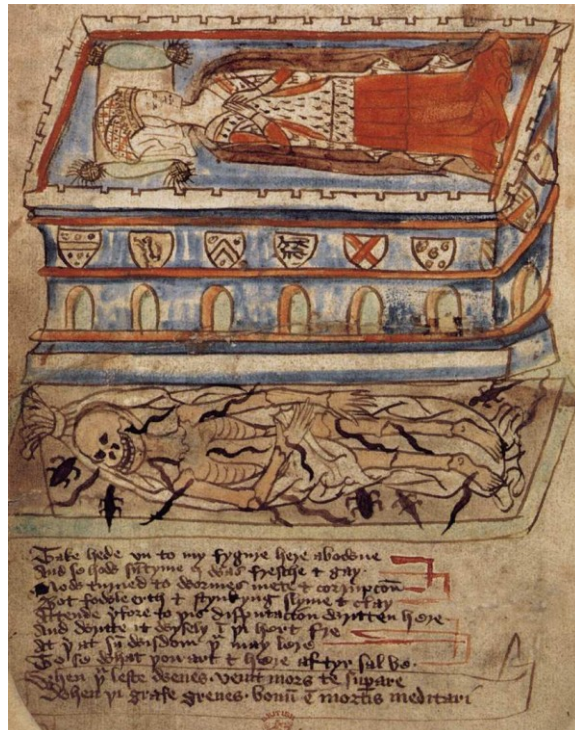 Take hede vn to my fygure here abowne
And se how sūtyme I was fresche & gay.
Now turned to wormes mete & corrupcoū
Bot fowle erth & stynkyng slyme & clay
Attende þfore to þis disputacion written here
And writte it wysely ī þi hert fre
At þ at sū wisdom þᵘ may lere
To se what þou art & here aftyr sal be.
When þᵘ leste wenes. venit mors te supare
When þi grafe grenes. bonū ē mortis meditari